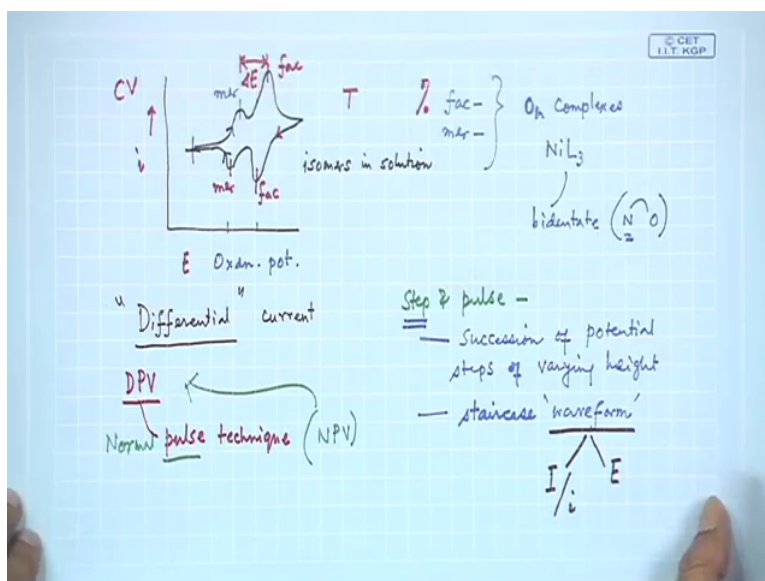 © CET
I.I.T. KGP
CV
i
mer
ΔE
fac
mer
fac
E Oxdn. pot.
isomers in solution
T % fac-
mer-
Oh Complexes
NiL3
bidentate (N O)
" Differential " current
DPV
Normal pulse technique (NPV)
Step & pulse -
— Succession of potential
steps of varying height
— staircase 'waveform'
I/i E